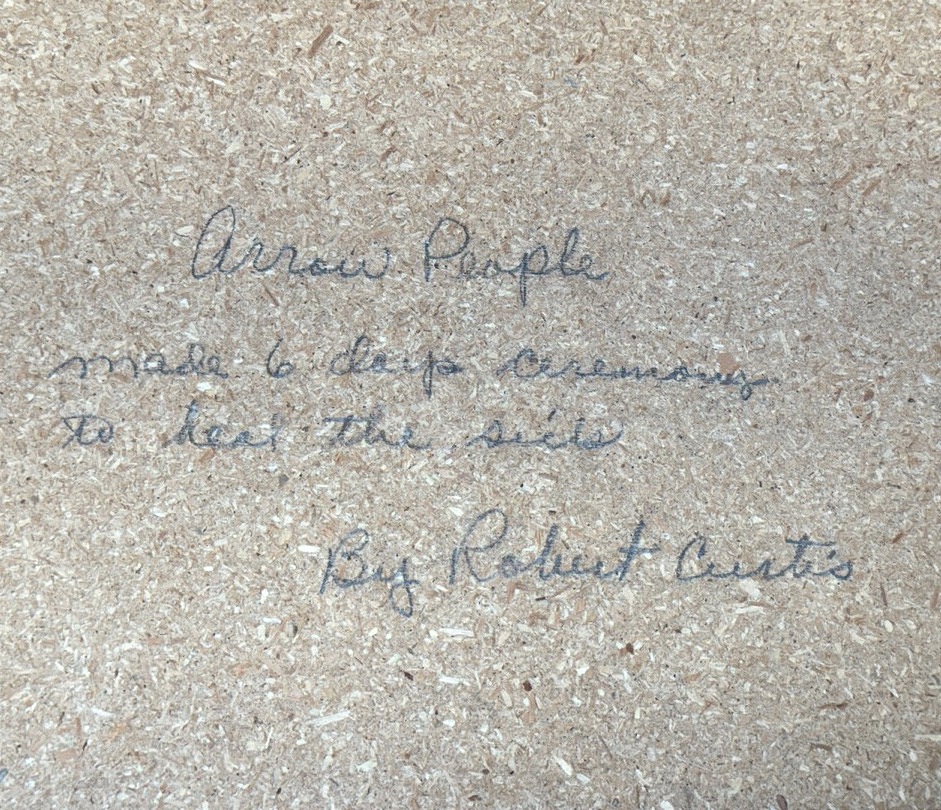 Arrow People
made 6 days ceremony
to heal the sick
By Robert Curtis